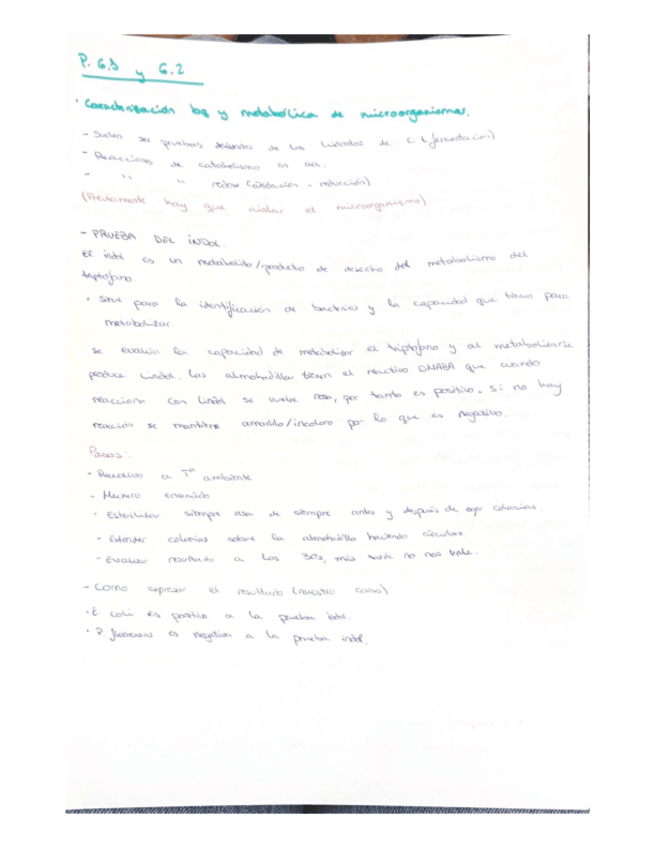 P. 6.1 y 6.2
· Caracterización bq y metabólica de microorganismos.
- Suelen ser pruebas de los hidratos de C (fermentación)
- Reacciones de catabolismo en aa.
- " " redox (oxidación - reducción)
(Previamente hay que aislar el microorganismo)
- PRUEBA DEL INDOL.
El indol es un metabolito/producto de desecho del metabolismo del
triptófano.
• Sirve para la identificación de bacterias y la capacidad que tienen para
metabolizar
se evalúa la capacidad de metabolizar el triptófano y al metabolizarse
produce indol. Las almohadillas tienen el reactivo DMABA que cuando
reacciona con indol se vuelve rosa, por tanto es positivo. Si no hay
reacción se mantiene amarillo/incoloro por lo que es negativo.
Pasos:
- Reactivo a Tª ambiente
- Mechero encendido
- Esterilizar siempre asa de siempre antes y después de coger colonias.
- Extender colonias sobre la almohadilla haciendo círculos.
- Evaluar resultado a los 30s, más tarde no nos vale.
- Como expresar el resultado (nuestro caso)
· E coli es positivo a la prueba indol.
· P. fluorescens es negativa a la prueba indol.